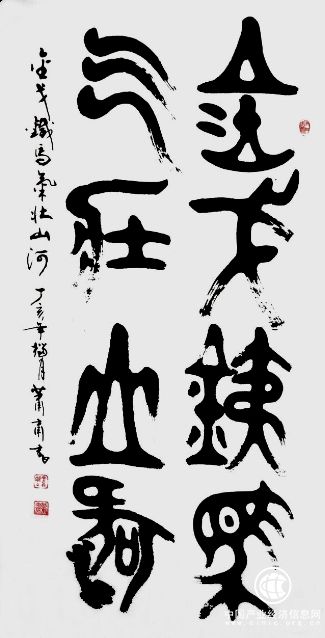 金戈銕馬
气壯山河
金戈鐵馬氣壯山河 丁亥年臘月蕭甫書
中国产业经济信息网
www.cinic.org.cn